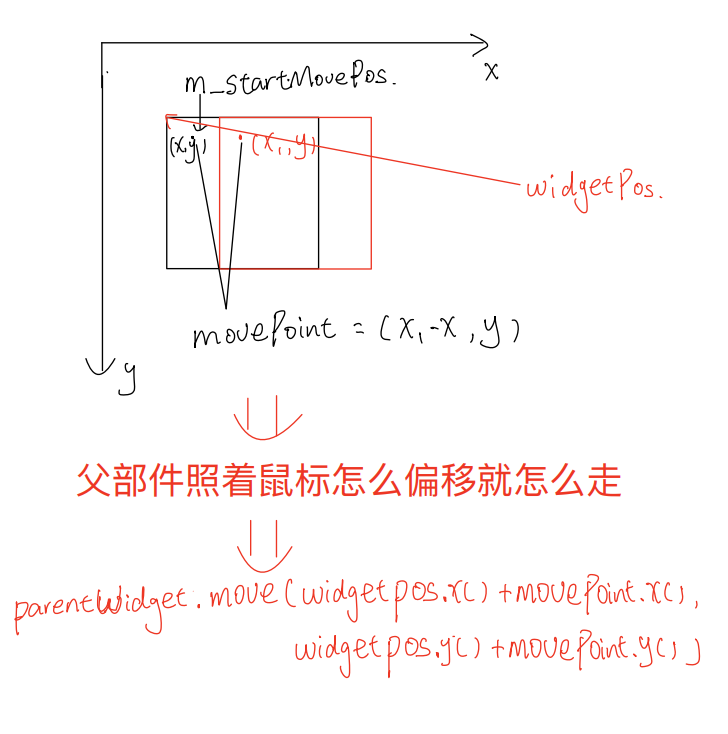 x
m_startMovePos.
(x,y)
(x₁,y)
widgetPos.
movePoint = (x₁-x,y)
y
父部件照着鼠标怎么偏移就怎么走
parentWidget.move(widgetpos.x()+movePoint.x(),
widgetpos.y()+movePoint.y())